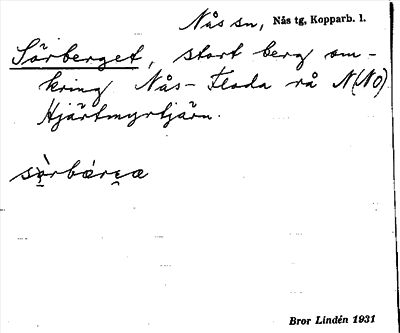 Nås sn, Nås tg, Kopparb. l.
Sörberget, stort berg om-
kring Nås-Floda rå N(NO)
Hjärtmyrtjärn.
Bror Lindén 1931